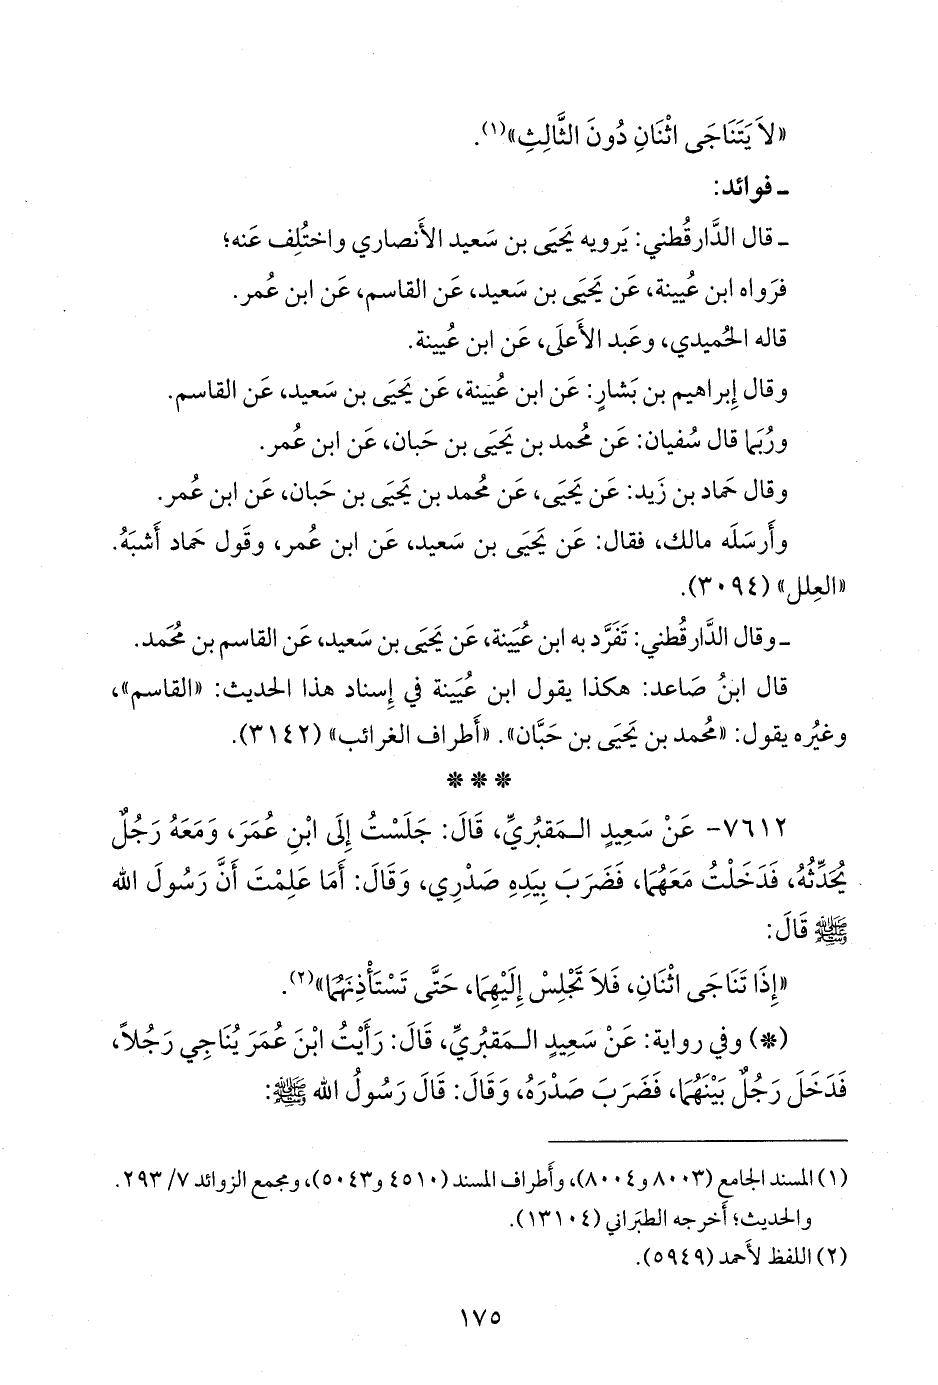 «لاَ يَتَنَاجَى اثْنَانِ دُونَ الثَّالِثِ»(١).
ـ فوائد:
ـ قال الدَّارقُطني: يَرويه يَحيَى بن سَعيد الأَنصاري واختُلِف عَنه؛
فرَواه ابن عُيينة، عَن يَحيَى بن سَعيد، عَن القاسم، عَن ابن عُمر.
قاله الحُميدي، وعَبد الأَعلَى، عَن ابن عُيينة.
وقال إِبراهيم بن بَشارٍ: عَن ابن عُيينة، عَن يَحيَى بن سَعيد، عَن القاسم.
ورُبَما قال سُفيان: عَن مُحمد بن يَحيَى بن حَبان، عَن ابن عُمر.
وقال حَماد بن زَيد: عَن يَحيَى، عَن مُحمد بن يَحيَى بن حَبان، عَن ابن عُمر.
وأَرسَلَه مالك، فقال: عَن يَحيَى بن سَعيد، عَن ابن عُمر، وقَول حَماد أَشبَهُ.
«العِلل» (٣٠٩٤).
ـ وقال الدَّارقُطني: تَفَرَّد به ابن عُيَينة، عَن يَحيَى بن سَعيد، عَن القاسم بن مُحَمد.
قال ابنُ صَاعد: هكذا يقول ابن عُيَينة في إِسناد هذا الحديث: «القاسم»،
وغيُره يقول: «مُحمد بن يَحيَى بن حَبَّان». «أَطراف الغرائب» (٣١٤٢).
* * *
٧٦١٢- عَنْ سَعِيدٍ الـمَقبُريِّ، قَالَ: جَلَسْتُ إِلَى ابْنِ عُمَرَ، وَمَعَهُ رَجُلٌ
يُحَدِّثُهُ، فَدَخَلْتُ مَعَهُمَا، فَضَرَبَ بِيَدِهِ صَدْرِي، وَقَالَ: أَمَا عَلِمْتَ أَنَّ رَسُولَ الله
ﷺ قَالَ:
«إِذَا تَنَاجَى اثْنَانِ، فَلاَ تَجْلِسْ إِلَيْهِمَا، حَتَّى تَسْتَأْذِنَهُمَا»(٢).
(*) وفي رواية: عَنْ سَعِيدٍ الـمَقبُريِّ، قَالَ: رَأَيْتُ ابْنَ عُمَرَ يُنَاجِي رَجُلاً،
فَدَخَلَ رَجُلٌ بَيْنَهُمَا، فَضَرَبَ صَدْرَهُ، وَقَالَ: قَالَ رَسُولُ الله ﷺ:
(١) المسند الجامع (٨٠٠٣ و٨٠٠٤)، وأَطراف المسند (٤٥١٠ و٥٠٤٣)، ومجمع الزوائد ٧/ ٢٩٣.
والحديث؛ أَخرجه الطبَراني (١٣١٠٤).
(٢) اللفظ لأَحمد (٥٩٤٩).
١٧٥